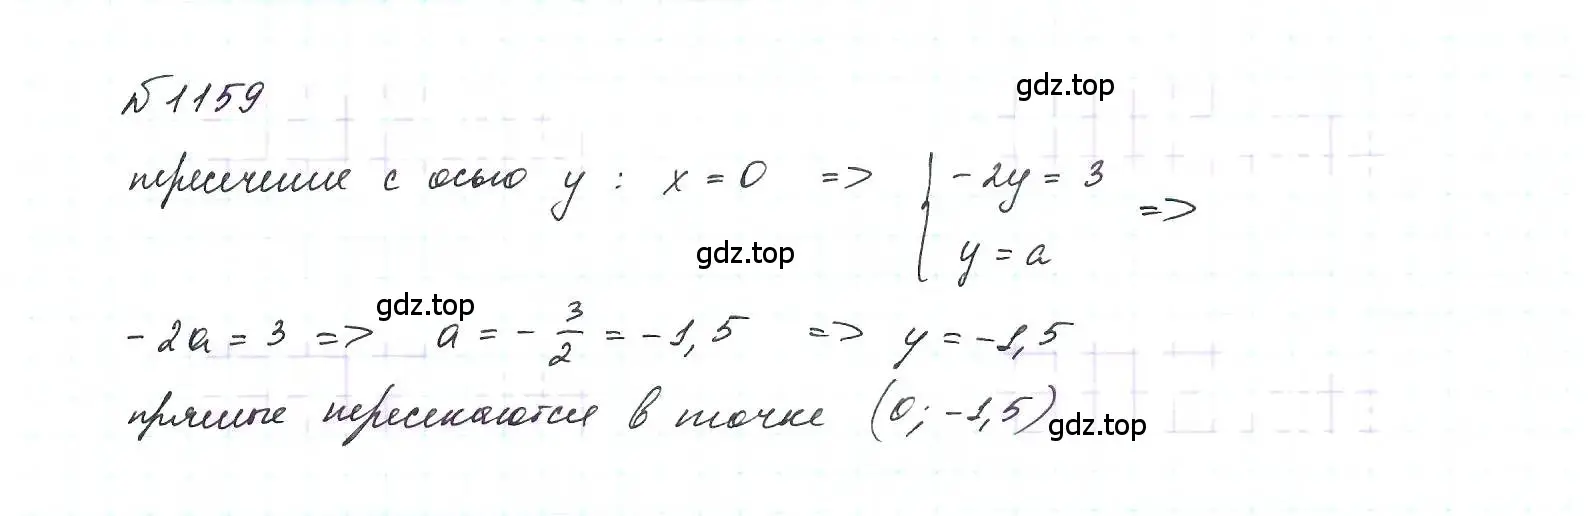 № 1159
gdz.top
пересечение с осью y : x = 0 => { -2y = 3 =>
y = a
gdz.top
gdz.top
-2a = 3 => a = - 3/2 = -1,5 => y = -1,5
прямые пересекаются в точке (0; -1,5)
gdz.top